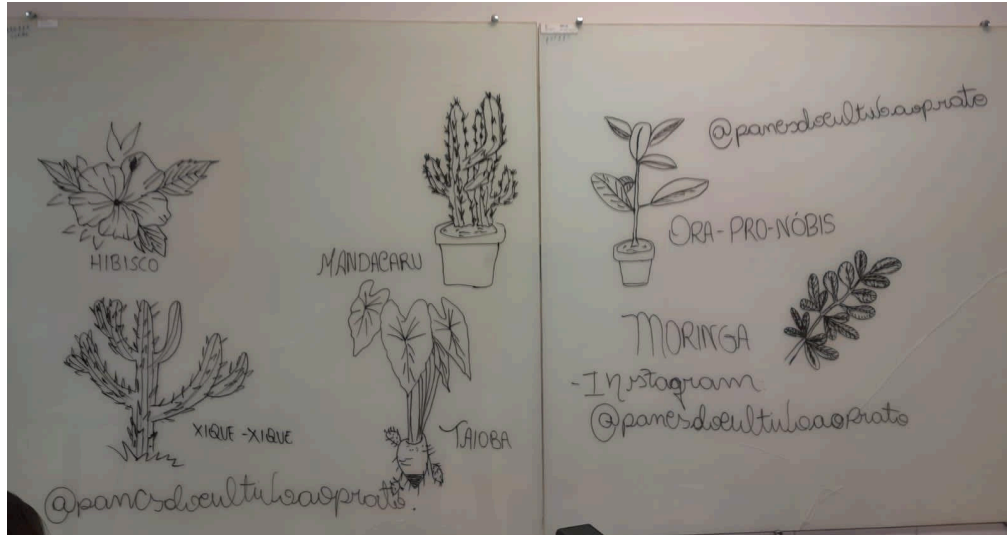 HIBISCO
MANDACARU
XIQUE-XIQUE
TAIOBA
@pancsdocultivoaoprato.
@pancsdocultivoaoprato
ORA-PRO-NÓBIS
MORINGA
-Instagram
@pancsdocultivoaoprato